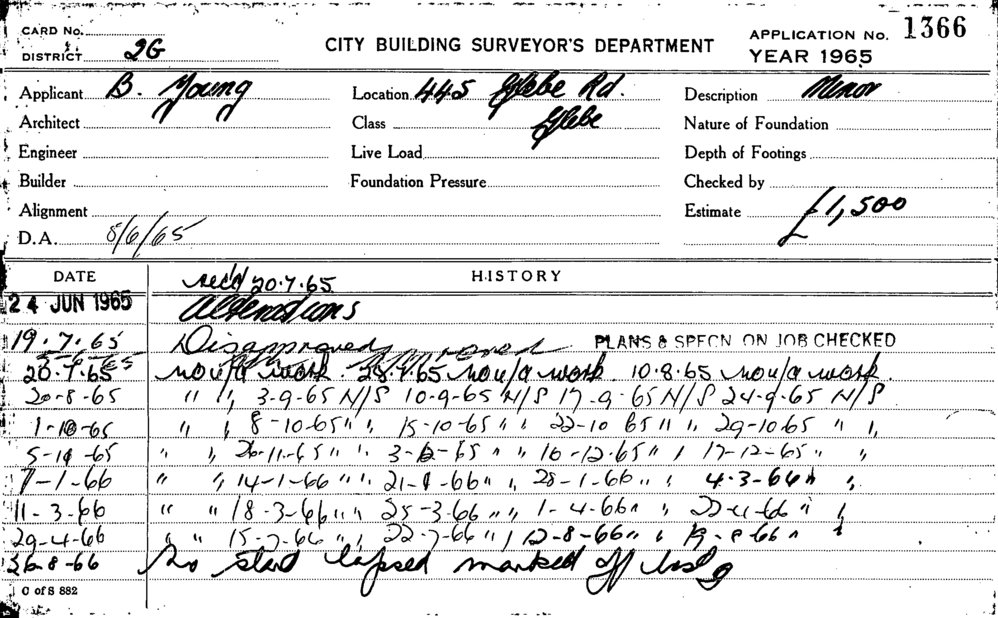 CARD No.
DISTRICT 2G
CITY BUILDING SURVEYOR'S DEPARTMENT
APPLICATION No. 1366
YEAR 1965
Applicant B. Young Location 445 Glebe Rd. Description Minor
Architect Class Glebe Nature of Foundation
Engineer Live Load Depth of Footings
Builder Foundation Pressure Checked by
Alignment Estimate £1,500
D.A. 8/6/65
DATE HISTORY
rec'd 20.7.65
24 JUN 1965 Alterations
19.7.65 Disapproved PLANS & SPECN ON JOB CHECKED
20.7.65 work. 28.7.65 work 10.8.65 work
20-8-65 " " 3-9-65 N/S 10-9-65 N/S 17-9-65 N/S 24-9-65 N/S
1-10-65 " " 8-10-65 " " 15-10-65 " " 22-10 65 " " 29-10 65 " "
5-11-65 " " 26-11-65 " " 3-12-65 " " 10-12-65 " " 17-12-65 " "
7-1-66 " " 14-1-66 " " 21-1-66 " " 28-1-66 " " 4-3-66 " "
11-3-66 " " 18-3-66 " " 25-3-66 " " 1-4-66 " " 22-4-66 " "
29-4-66 " " 15-7-66 " " 22-7-66 " " 12-8-66 " " 19-8-66 " "
26-8-66 No start lapsed marked off
C of S 882